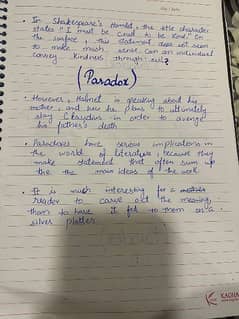 • In Shakespeare's Hamlet, the title character
states "I must be cruel to be kind." On
the surface, this statement does not seem
to make much sense. Can an individual
convey kindness through evil?
(Paradox)
• However, Halmet is speaking about his
mother, and how he plans to ultimately
slay Claudius in order to avenge
his father's death
• Paradoxes have serious implications in
the world of literature, because they
make statements that often sum up
the the main ideas of the work
• It is much interesting for a
reader to carve out the meaning
than to have it fed to them on a
silver platter.